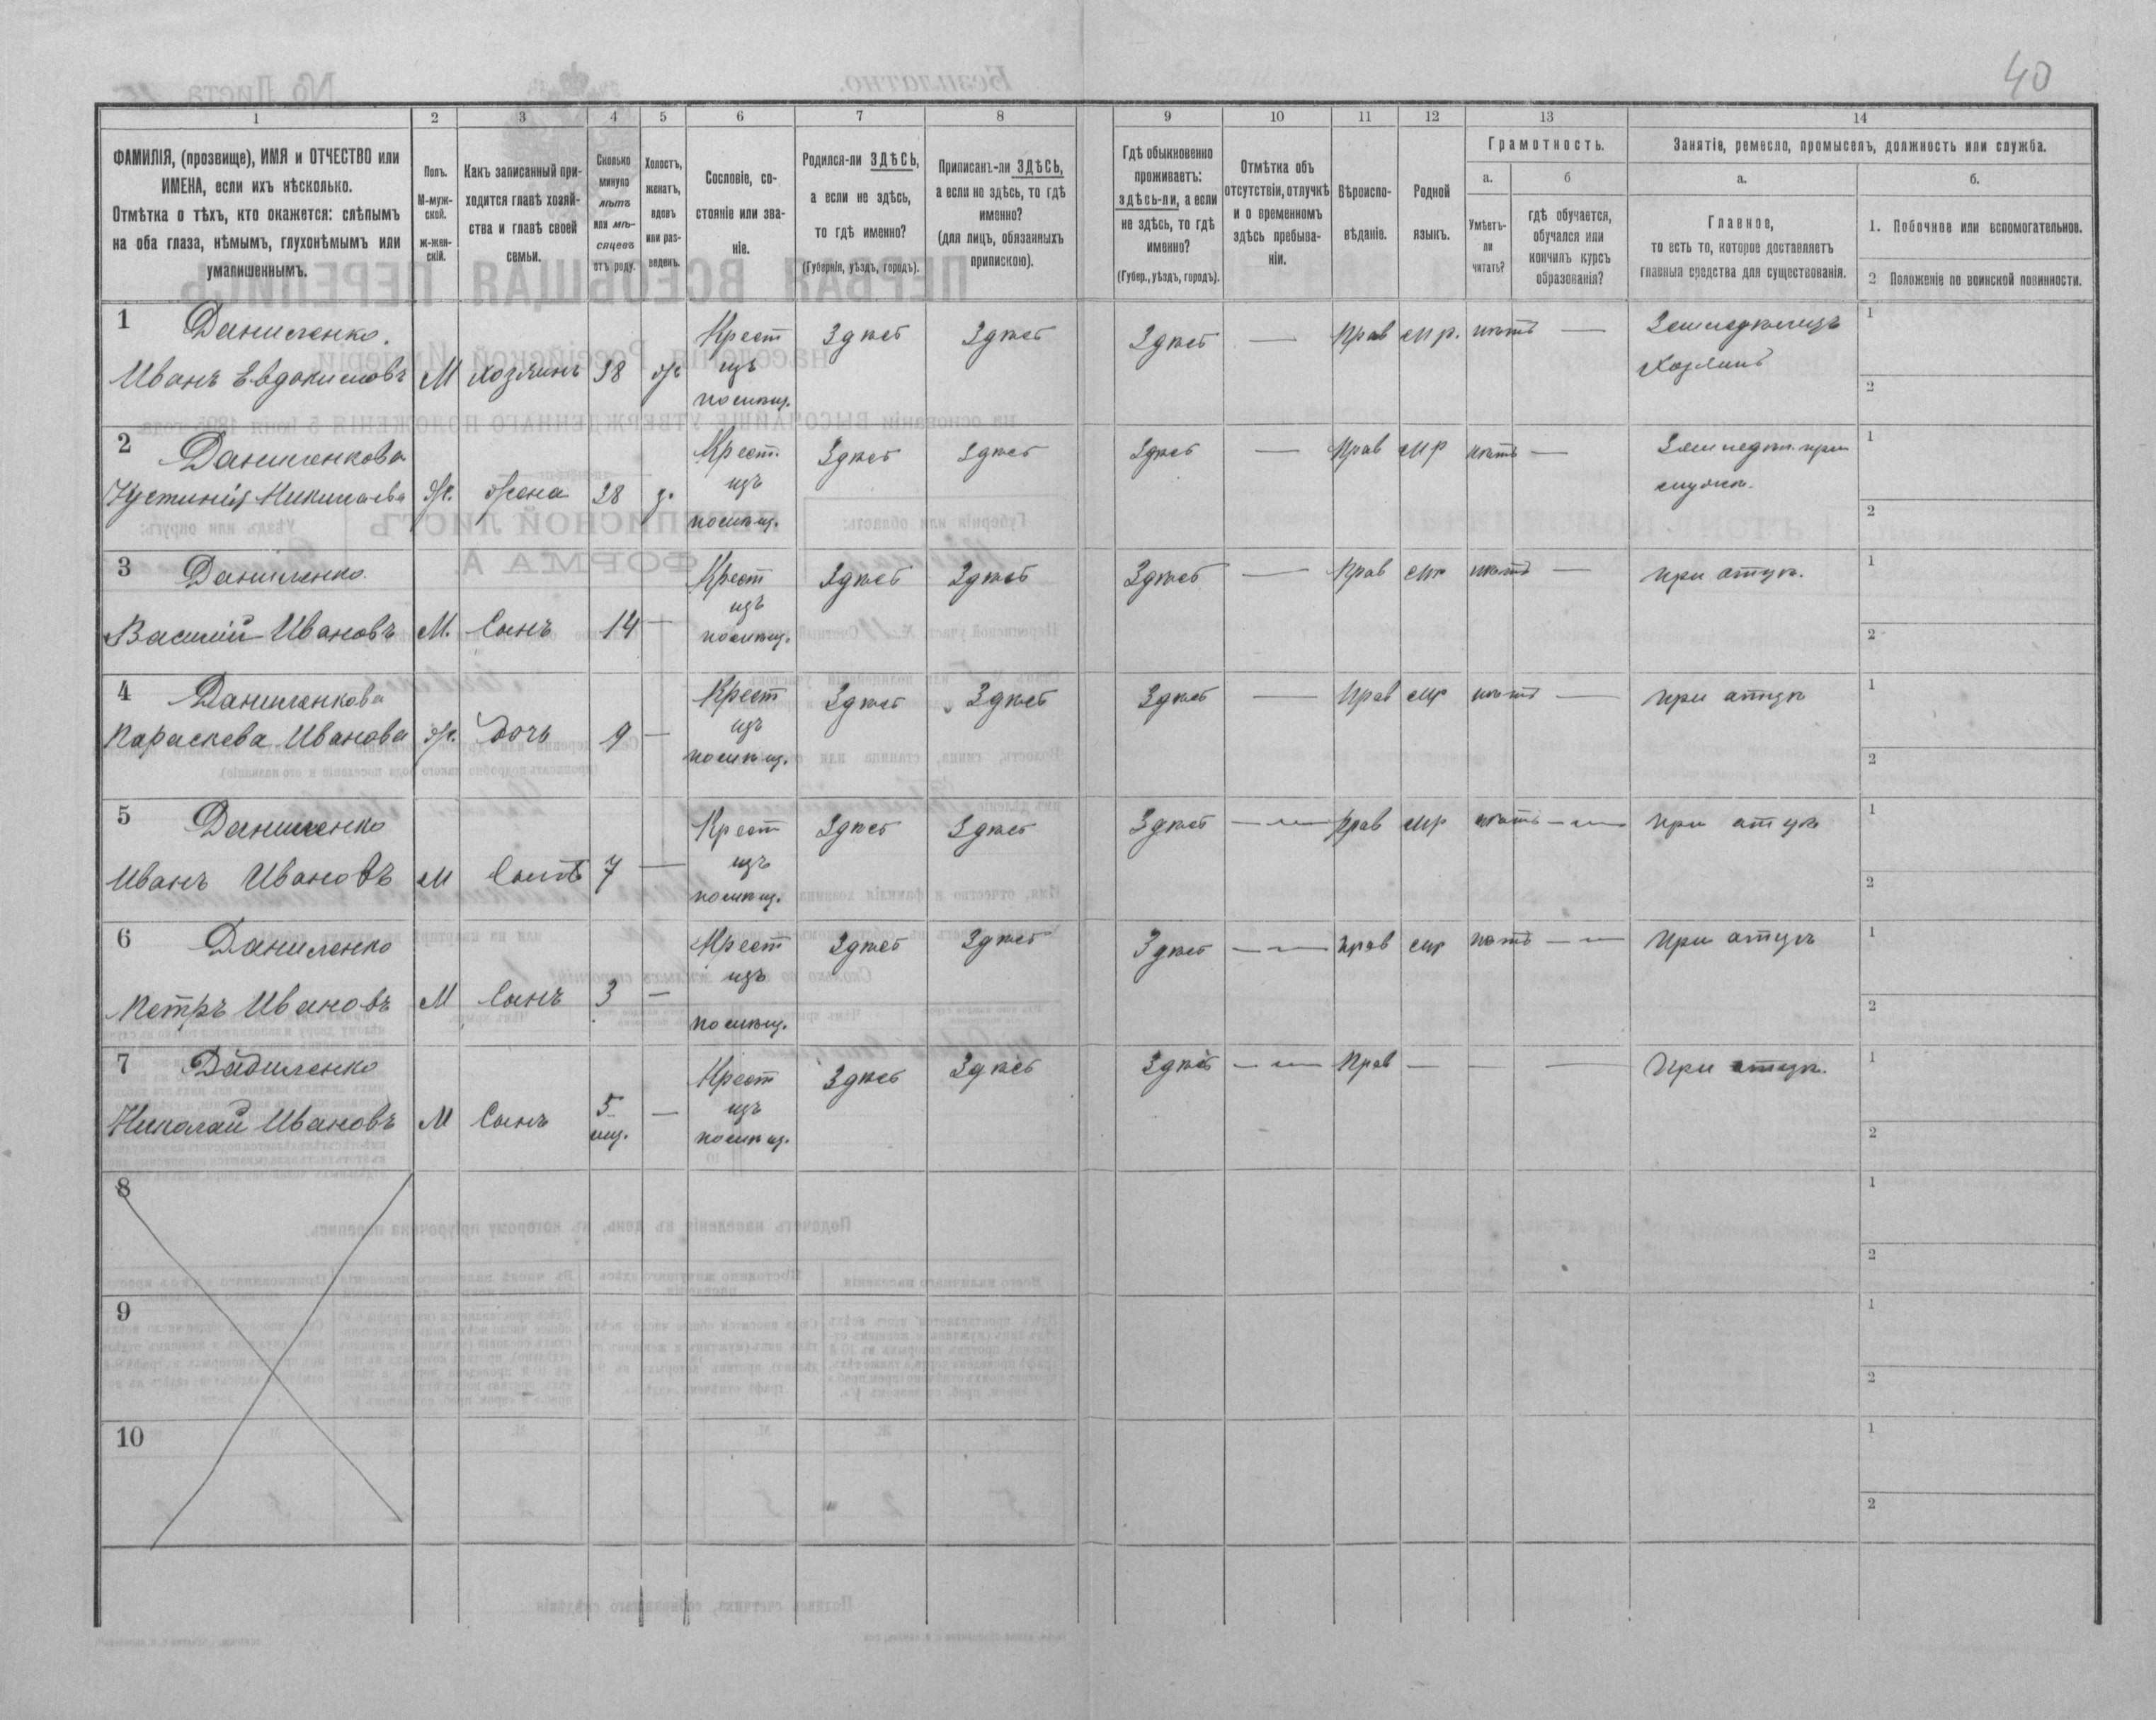 40
1 2 3 4 5 6 7 8 9 10 11 12 13 14
ФАМИЛІЯ, (прозвище), ИМЯ и ОТЧЕСТВО или
ИМЕНА, если ихъ нѣсколько.
Отмѣтка о тѣхъ, кто окажется: слѣпымъ
на оба глаза, нѣмымъ, глухонѣмымъ или
умалишеннымъ.
Полъ.
М-муж-
ской.
ж-жен-
скій.
Какъ записанный при-
ходится главѣ хозяй-
ства и главѣ своей
семьи.
Сколько
минуло
лѣтъ
или мѣ-
сяцевъ
отъ роду.
Холостъ,
женатъ,
вдовъ
или раз-
веденъ.
Сословіе, со-
стояніе или зва-
ніе.
Родился-ли ЗДѢСЬ,
а если не здѣсь,
то гдѣ именно?
(Губернія, уѣздъ, городъ).
Приписанъ-ли ЗДѢСЬ,
а если не здѣсь, то гдѣ
именно?
(для лицъ, обязанныхъ
припискою).
Гдѣ обыкновенно
проживаетъ:
здѣсь-ли, а если
не здѣсь, то гдѣ
именно?
(Губер., уѣздъ, городъ).
Отмѣтка объ
отсутствіи, отлучкѣ
и о временномъ
здѣсь пребыва-
ніи.
Вѣроиспо-
вѣданіе.
Родной
языкъ.
Грамотность.
а.
Умѣетъ-
ли
читать?
б
гдѣ обучается,
обучался или
кончилъ курсъ
образованія?
Занятіе, ремесло, промыселъ, должность или служба.
а.
Главное,
то есть то, которое доставляетъ
главныя средства для существованія.
б.
1. Побочное или вспомогательное.
2 Положеніе по воинской повинности.
1 Даниленко. Крест Здѣсь Здѣсь Здѣсь — Прав мр. нѣтъ — Земледѣлецъ 1
Иванъ Евдокимовъ М Хозяинъ 38 ж изъ Хозяинъ
помѣщ. 2
2 Даниленкова Крест. Здѣсь Здѣсь Здѣсь — Прав мр нѣтъ — Земледѣл. при 1
Устинія Николаева ж. жена 38 з. изъ мужѣ.
помѣщ. 2
3 Даниленко. Крест Здѣсь Здѣсь Здѣсь — Прав мр нѣтъ — при отцѣ. 1
Василій Ивановъ М. Сынъ 14 — изъ
помѣщ. 2
4 Даниленкова Крест Здѣсь Здѣсь Здѣсь — Прав мр нѣтъ — при отцѣ 1
Параскева Иванова ж. Дочь 9 — изъ
помѣщ. 2
5 Даниленко Крест Здѣсь Здѣсь Здѣсь — Прав мр нѣтъ — при отцѣ 1
Иванъ Ивановъ М Сынъ 7 — изъ
помѣщ. 2
6 Даниленко Крест Здѣсь Здѣсь Здѣсь — Прав мр нѣтъ — При отцѣ 1
Петръ Ивановъ М Сынъ 3 — изъ
помѣщ. 2
7 Даниленко Крест Здѣсь Здѣсь Здѣсь — Прав — — — При отцѣ. 1
Николай Ивановъ М Сынъ 5 — изъ
мц. помѣщ. 2
8 1
2
9 1
2
10 1
2